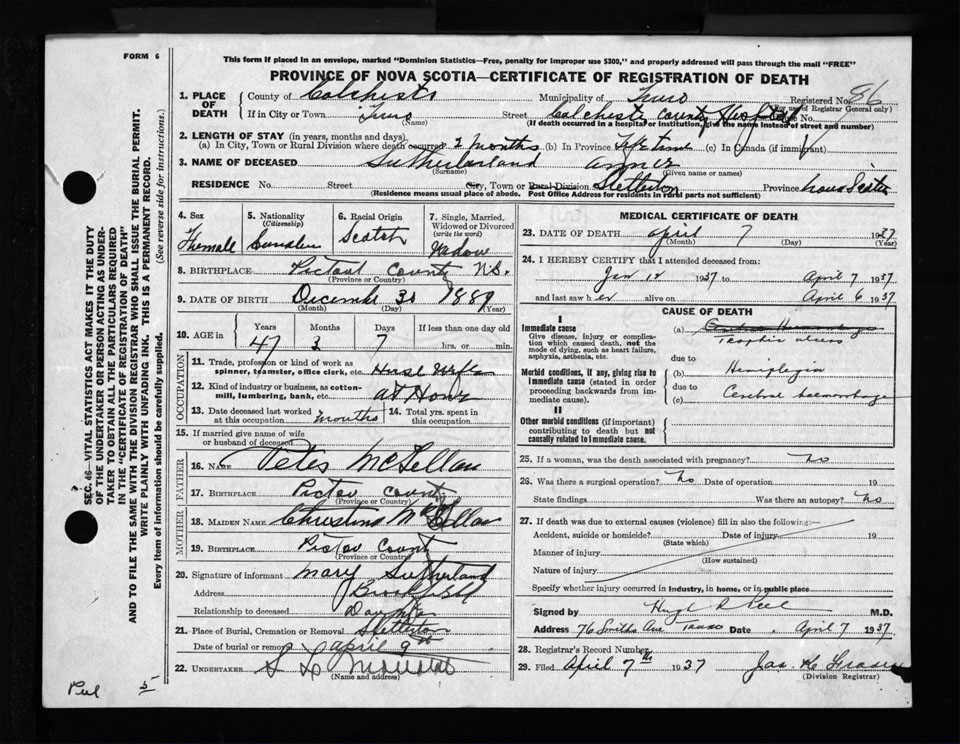 FORM 6
This form if placed in an envelope, marked "Dominion Statistics—Free, penalty for improper use $300," and properly addressed will pass through the mail "FREE"
PROVINCE OF NOVA SCOTIA—CERTIFICATE OF REGISTRATION OF DEATH
1. PLACE OF DEATH
County of Colchester Municipality of Truro Registered No. 96
(For use of Registrar General only)
If in City or Town Truro (Name) Street Colchester County Hospital No.
(If death occurred in a hospital or institution, give the name instead of street and number)
2. LENGTH OF STAY (in years, months and days).
(a) In City, Town or Rural Division where death occurred 2 months (b) In Province Life time (c) In Canada (if immigrant)
3. NAME OF DECEASED Sutherland
(Surname) (Given name or names)
RESIDENCE No. Street City, Town or Rural Division Stellerton Province Nova Scotia
(Residence means usual place of abode. Post Office Address for residents in rural parts not sufficient)
4. Sex Female
5. Nationality (Citizenship)
6. Racial Origin Scotch
7. Single, Married, Widowed or Divorced (write the word) Widow
8. BIRTHPLACE Pictout County N.S.
(Province or Country)
9. DATE OF BIRTH December 30 1889
(Month) (Day) (Year)
10. AGE in Years 47 Months 3 Days 7 If less than one day old hrs. or min.
OCCUPATION
11. Trade, profession or kind of work as spinner, teamster, office clerk, etc. House Wife
12. Kind of industry or business, as cotton-mill, lumbering, bank, etc. at Home
13. Date deceased last worked at this occupation months
14. Total yrs. spent in this occupation
15. If married give name of wife or husband of deceased
FATHER
16. NAME Peter McLellan
17. BIRTHPLACE Pictou County
(Province or Country)
MOTHER
18. MAIDEN NAME Christina McLellan
19. BIRTHPLACE Pictou County
(Province or Country)
20. Signature of informant Mary Sutherland
Address Brookfield
Relationship to deceased Daughter
21. Place of Burial, Cremation or Removal Stellerton
Date of burial or removal April 9th
22. UNDERTAKER S
(Name and address)
MEDICAL CERTIFICATE OF DEATH
23. DATE OF DEATH April 7 1937
(Month) (Day) (Year)
24. I HEREBY CERTIFY that I attended deceased from:
Jan 12 1937 to April 7 1937
and last saw her alive on April 6 1937
CAUSE OF DEATH
I
Immediate cause
Give disease, injury or complication which caused death, not the mode of dying, such as heart failure, asphyxia, asthenia, etc.
(a) Cerebral Haemorrhage
Trophic ulcers
due to
Morbid conditions, if any, giving rise to immediate cause (stated in order proceeding backwards from immediate cause).
(b) Hemiplegia
due to
(c) Cerebral haemorrhage
II
Other morbid conditions (if important) contributing to death but not causally related to immediate cause.
25. If a woman, was the death associated with pregnancy? No
26. Was there a surgical operation? No Date of operation 19
State findings Was there an autopsy? No
27. If death was due to external causes (violence) fill in also the following:—
Accident, suicide or homicide? Date of injury 19
(State which)
Manner of injury
(How sustained)
Nature of injury
Specify whether injury occurred in industry, in home, or in public place
Signed by Hugh R Peel M.D.
Address 76 Smiths Ave Truro Date April 7 1937
28. Registrar's Record Number
29. Filed April 7th 1937 Jas. K Fraser
(Division Registrar)
SEC. 46—VITAL STATISTICS ACT MAKES IT THE DUTY
OF THE UNDERTAKER OR PERSON ACTING AS UNDER-
TAKER TO OBTAIN ALL THE PARTICULARS REQUIRED
IN THE "CERTIFICATE OF REGISTRATION OF DEATH"
AND TO FILE THE SAME WITH THE DIVISION REGISTRAR WHO SHALL ISSUE THE BURIAL PERMIT.
WRITE PLAINLY WITH UNFADING INK. THIS IS A PERMANENT RECORD.
Every item of information should be carefully supplied. (See reverse side for instructions.)
Peel 5